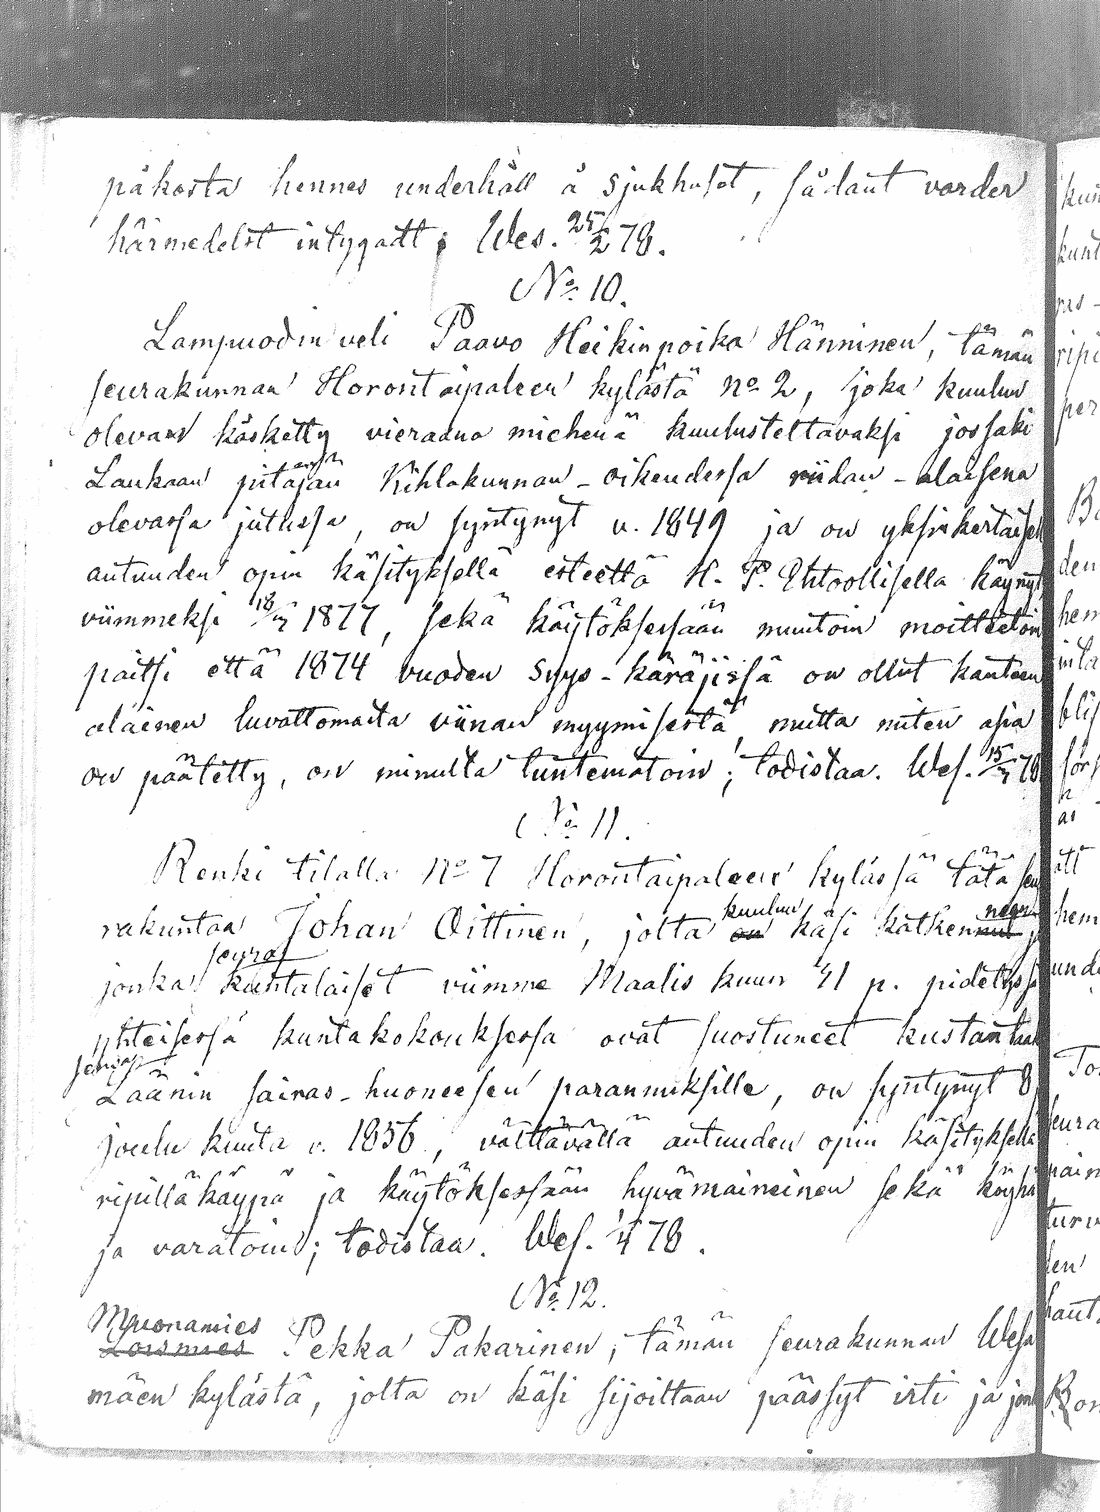 påkosta hennes underhåll å sjukhuset, sådant varder
härmedelst intygadt; Wes. 25/2 78.
No 10.
Lampuodin veli Paavo Heikinpoika Hänninen, tämän
seurakunnan Horontaipaleen kylästä no 2, joka kuuluu
olevan käsketty vieraana miehenä kuulusteltavaksi jossaki
Laukaan pitäjän Kihlakunnan-oikeudessa riidan-alaisena
olevassa jutussa, on syntynyt v. 1849 ja on yksinkertaisel
autuuden opin käsityksellä esteettä H. P. Ehtoollisella käynyt
viimmeksi 18/3 1877, sekä käytöksessään muutoin moitteetoin
paitsi että 1874 vuoden syys-käräjissä on ollut kanteen
alainen luvattomasta viinan myymisestä, mutta miten asia
on päätetty, on minulta tuntematoin; todistaa. Wes. 15/3 78
No 11.
Renki tilalla No 7 Horontaipaleen kylässä tätä seu
rakuntaa Johan Oittinen, jolta kuuluu käsi katkenneen ja
jonka seurakuntalaiset viimme Maalis kuun 31 p. pidetyssä
yhteisessä kuntakokouksessa ovat suostuneet kustantaa
Läänin sairas-huoneesen parannuksille, on syntynyt 8
joulu kuuta v. 1856, välttävällä autuuden opin käsityksellä
ripilläkäypä ja käytöksessään hyvämaineinen sekä köyhä
ja varatoin; todistaa. Wes. 1/4 78.
No 12.
Muonamies
Loismies Pekka Pakarinen, tämän seurakunnan Wesa
mäen kylästä, jolta on käsi sijoiltaan päässyt irti ja jon